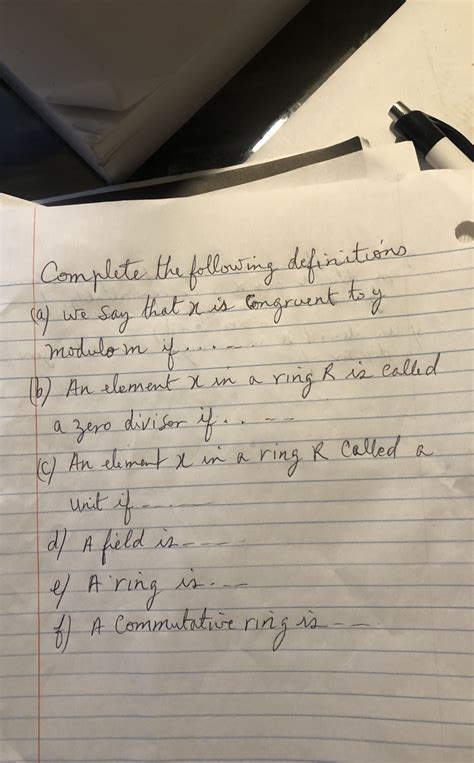 Complete the following definitions
(a) we say that x is Congruent to y
modulo m if......
(b) An element x in a ring R is called
a zero divisor if.....
(c) An element x in a ring R Called a
unit if......
d) A field is-----
e) A ring is.---
f) A Commutative ring is ---